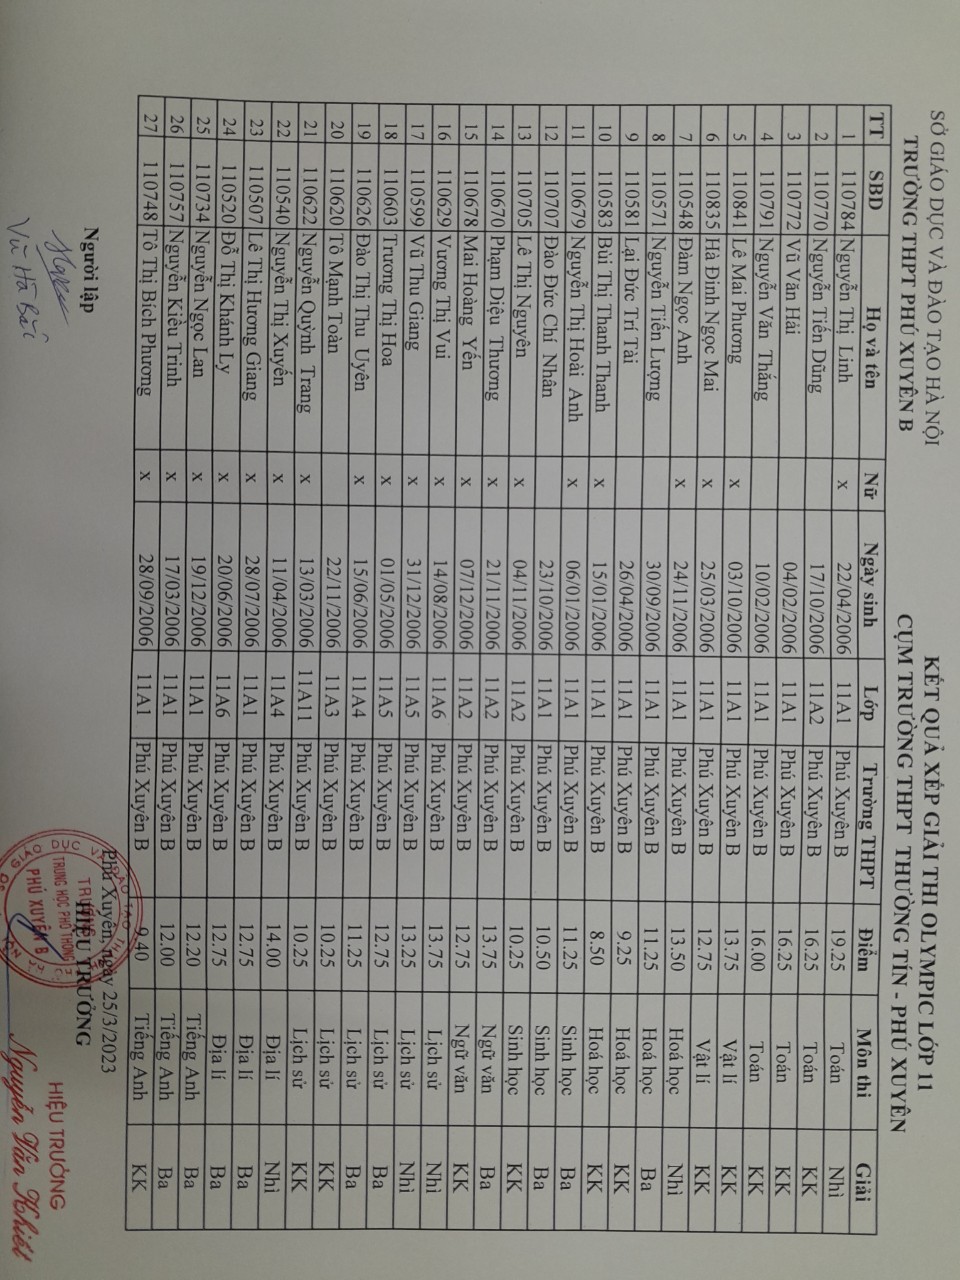 SỞ GIÁO DỤC VÀ ĐÀO TẠO HÀ NỘI
TRƯỜNG THPT PHÚ XUYÊN B
KẾT QUẢ XẾP GIẢI THI OLYMPIC LỚP 11
CỤM TRƯỜNG THPT THƯỜNG TÍN - PHÚ XUYÊN
TT SBD Họ và tên Nữ Ngày sinh Lớp Trường THPT Điểm Môn thi Giải
1 110784 Nguyễn Thị Linh x 22/04/2006 11A1 Phú Xuyên B 19.25 Toán Nhì
2 110770 Nguyễn Tiến Dũng 17/10/2006 11A2 Phú Xuyên B 16.25 Toán KK
3 110772 Vũ Văn Hải 04/02/2006 11A1 Phú Xuyên B 16.25 Toán KK
4 110791 Nguyễn Văn Thắng 10/02/2006 11A1 Phú Xuyên B 16.00 Toán KK
5 110841 Lê Mai Phương x 03/10/2006 11A1 Phú Xuyên B 13.75 Vật lí KK
6 110835 Hà Đinh Ngọc Mai x 25/03/2006 11A1 Phú Xuyên B 12.75 Vật lí KK
7 110548 Đàm Ngọc Anh x 24/11/2006 11A1 Phú Xuyên B 13.50 Hoá học Nhì
8 110571 Nguyễn Tiến Lượng 30/09/2006 11A1 Phú Xuyên B 11.25 Hoá học Ba
9 110581 Lại Đức Trí Tài 26/04/2006 11A1 Phú Xuyên B 9.25 Hoá học KK
10 110583 Bùi Thị Thanh Thanh x 15/01/2006 11A1 Phú Xuyên B 8.50 Hoá học KK
11 110679 Nguyễn Thị Hoài Anh x 06/01/2006 11A1 Phú Xuyên B 11.25 Sinh học Ba
12 110707 Đào Đức Chí Nhân 23/10/2006 11A1 Phú Xuyên B 10.50 Sinh học Ba
13 110705 Lê Thị Nguyên x 04/11/2006 11A2 Phú Xuyên B 10.25 Sinh học KK
14 110670 Phạm Diệu Thương x 21/11/2006 11A2 Phú Xuyên B 13.75 Ngữ văn Ba
15 110678 Mai Hoàng Yến x 07/12/2006 11A2 Phú Xuyên B 12.75 Ngữ văn KK
16 110629 Vương Thị Vui x 14/08/2006 11A6 Phú Xuyên B 13.75 Lịch sử Nhì
17 110599 Vũ Thu Giang x 31/12/2006 11A5 Phú Xuyên B 13.25 Lịch sử Nhì
18 110603 Trương Thị Hoa x 01/05/2006 11A5 Phú Xuyên B 12.75 Lịch sử Ba
19 110626 Đào Thị Thu Uyên x 15/06/2006 11A4 Phú Xuyên B 11.25 Lịch sử Ba
20 110620 Tô Mạnh Toàn 22/11/2006 11A3 Phú Xuyên B 10.25 Lịch sử KK
21 110622 Nguyễn Quỳnh Trang x 13/03/2006 11A11 Phú Xuyên B 10.25 Lịch sử KK
22 110540 Nguyễn Thị Xuyến x 11/04/2006 11A4 Phú Xuyên B 14.00 Địa lí Nhì
23 110507 Lê Thị Hương Giang x 28/07/2006 11A1 Phú Xuyên B 12.75 Địa lí Ba
24 110520 Đỗ Thị Khánh Ly x 20/06/2006 11A6 Phú Xuyên B 12.75 Địa lí Ba
25 110734 Nguyễn Ngọc Lan x 19/12/2006 11A1 Phú Xuyên B 12.20 Tiếng Anh Ba
26 110757 Nguyễn Kiều Trinh x 17/03/2006 11A1 Phú Xuyên B 12.00 Tiếng Anh Ba
27 110748 Tô Thị Bích Phương x 28/09/2006 11A1 Phú Xuyên B 9.40 Tiếng Anh KK
Phú Xuyên, ngày 25/3/2023
Người lập
HIỆU TRƯỞNG
TRƯỜNG
TRUNG HỌC PHỔ THÔNG
PHÚ XUYÊN B
Vũ Hà Bắc
HIỆU TRƯỞNG
Nguyễn Văn Khiết